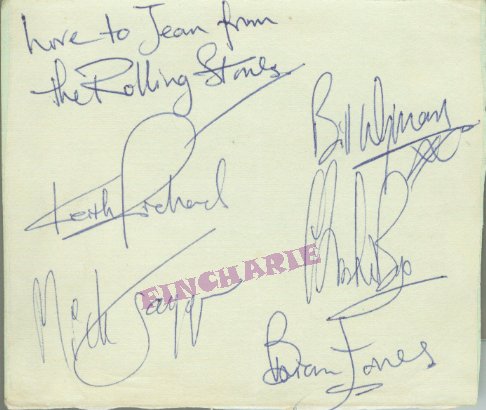 Love to Jean from
the Rolling Stones
Bill Wyman
Keith Richard
Charlie
Mick Jagger
FINCHARIE
Brian Jones